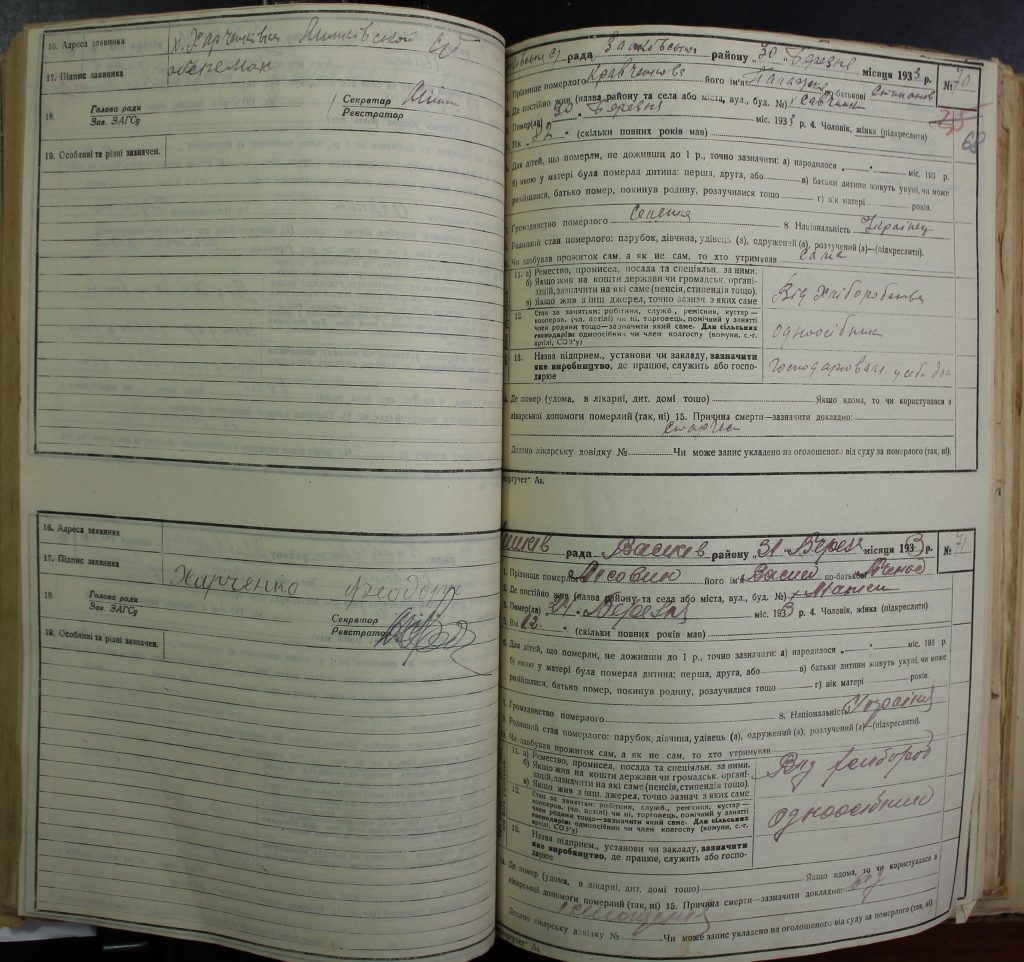 16. Адреса заявника
х. Харченківка
17. Підпис заявника
18. Голова ради
Зав. ЗАГСу
Секретар
Реєстратор
19. Особливі та різні зазначен.
16. Адреса заявника
17. Підпис заявника
Харченко Феодор
18. Голова ради
Зав. ЗАГСу
Секретар
Реєстратор
19. Особливі та різні зазначен.
рада району „30" Березня місяця 1933 р. № 70
Прізвище померлого Кравченкова його ім'я по-батькові
Де постійно жив (назва району та села або міста, вул., буд. №)
Помер(ла) 30 „Березня міс. 1933 р. 4. Чоловік, жінка (підкреслити)
68
Вік 82 „ (скільки повних років мав)
Для дітей, що померли, не доживши до 1 р., точно зазначити: а) народилося „ " міс. 193 р.
б) якою у матері була померла дитина: перша, друга, або в) батьки дитини живуть укупі, чи може
розійшлися, батько помер, покинув родину, розлучилися тощо г) вік матері років.
Громадянство померлого Селянка 8. Національність Українец
Родинний стан померлого: парубок, дівчина, удівець (а), одружений (а), розлучений (а)—(підкреслити).
Чи здобував прожиток сам, а як не сам, то хто утримував Сама
11. а) Ремество, промисел, посада та спеціяльн. за ними.
б) Якщо жив на кошти держави чи громадськ. органі-
зацій, зазначити на які саме (пенсія, стипендія тощо).
в) Якщо жив з інш. джерел, точно зазнач. з яких саме
Від Хліборобства
12. Стан за занятям: робітник, служб., ремісник, кустар—
кооперов. (чл. артілі) чи ні, торговець, помічний у занятті
член родини тощо—зазначити який саме. Для сільських
господарів: одноосібник чи член колгоспу (комуни, с.-г.
артілі, СОЗ'у)
одноосібник
13. Назва підприєм., установи чи закладу, зазначити
яке виробництво, де працює, служить або госпо-
дарює
Господарювала у себе
Де помер (удома, в лікарні, дит. домі тощо) Якщо вдома, то чи користувався з
лікарської допомоги померлий (так, ні) 15. Причина смерти—зазначити докладно:
Додано лікарську довідку № Чи може запис укладено на оголошеного від суду за померлого (так, ні).
рада району „31" Березня місяця 1933 р. № 71
1. Прізвище померлого Лісовин його ім'я Василь по-батькові
2. Де постійно жив (назва району та села або міста, вул., буд. №)
3. Помер(ла) 24 „Березня міс. 1933 р. 4. Чоловік, жінка (підкреслити)
5. Вік 12 „ (скільки повних років мав)
Для дітей, що померли, не доживши до 1 р., точно зазначити: а) народилося „ " міс. 193 р.
б) якою у матері була померла дитина: перша, друга, або в) батьки дитини живуть укупі, чи може
розійшлися, батько помер, покинув родину, розлучилися тощо г) вік матері років.
Громадянство померлого 8. Національність
Родинний стан померлого: парубок, дівчина, удівець (а), одружений (а), розлучений (а)—(підкреслити).
Чи здобував прожиток сам, а як не сам, то хто утримував
11. а) Ремество, промисел, посада та спеціяльн. за ними.
б) Якщо жив на кошти держави чи громадськ. органі-
зацій, зазначити на які саме (пенсія, стипендія тощо).
в) Якщо жив з інш. джерел, точно зазнач. з яких саме
Від
12. Стан за занятям: робітник, служб., ремісник, кустар—
кооперов. (чл. артілі) чи ні, торговець, помічний у занятті
член родини тощо—зазначити який саме. Для сільських
господарів: одноосібник чи член колгоспу (комуни, с.-г.
артілі, СОЗ'у)
одноосібний
13. Назва підприєм., установи чи закладу, зазначити
яке виробництво, де працює, служить або госпо-
дарює
Де помер (удома, в лікарні, дит. домі тощо) Якщо вдома, то чи користувався з
лікарської допомоги померлий (так, ні) 15. Причина смерти—зазначити докладно: від
Додано лікарську довідку № Чи може запис укладено на оголошеного від суду за померлого (так, ні).